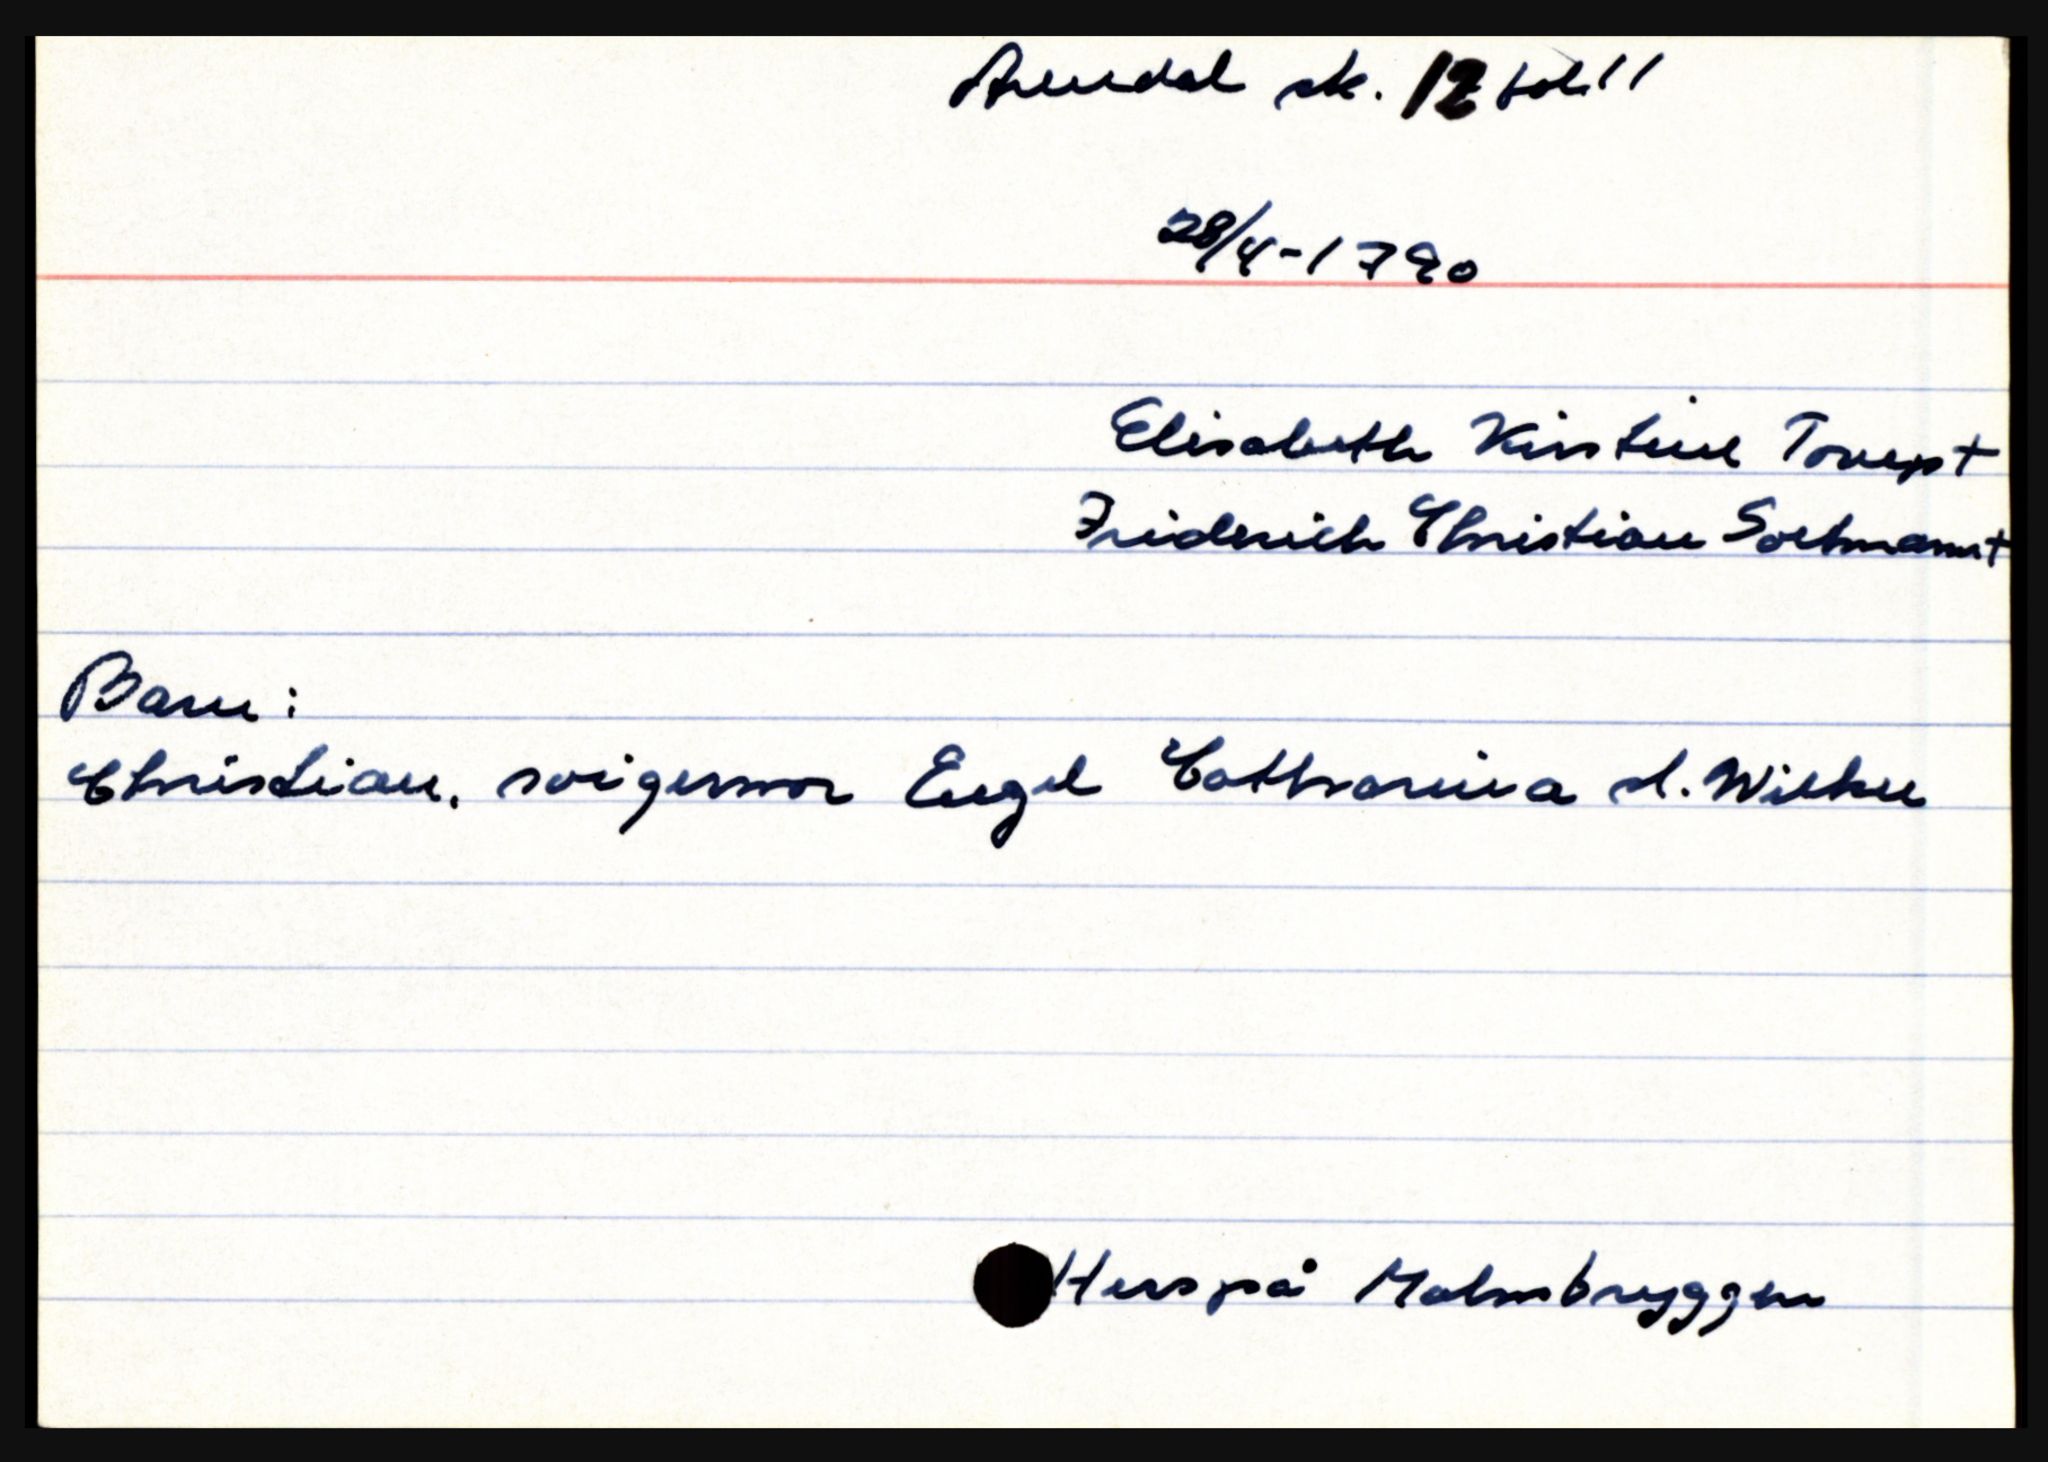 Arendal sk. 12 fol 11
28/4-1790
Elisabeth Kirstine +
Friderich Christian Soetmann +
Barn:
Christian. svigermor Engel Catharina sl. Wilken
Hus på Malmbryggen